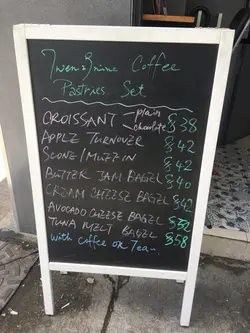 Twenty Nine Coffee
Pastries Set
CROISSANT plain chocolate $38
APPLE TURNOVER $42
SCONE/MUFFIN $42
BUTTER JAM BAGEL $40
CREAM CHEESE BAGEL $42
AVOCADO CHEESE BAGEL $52
TUNA MELT BAGEL $58
with coffee or Tea